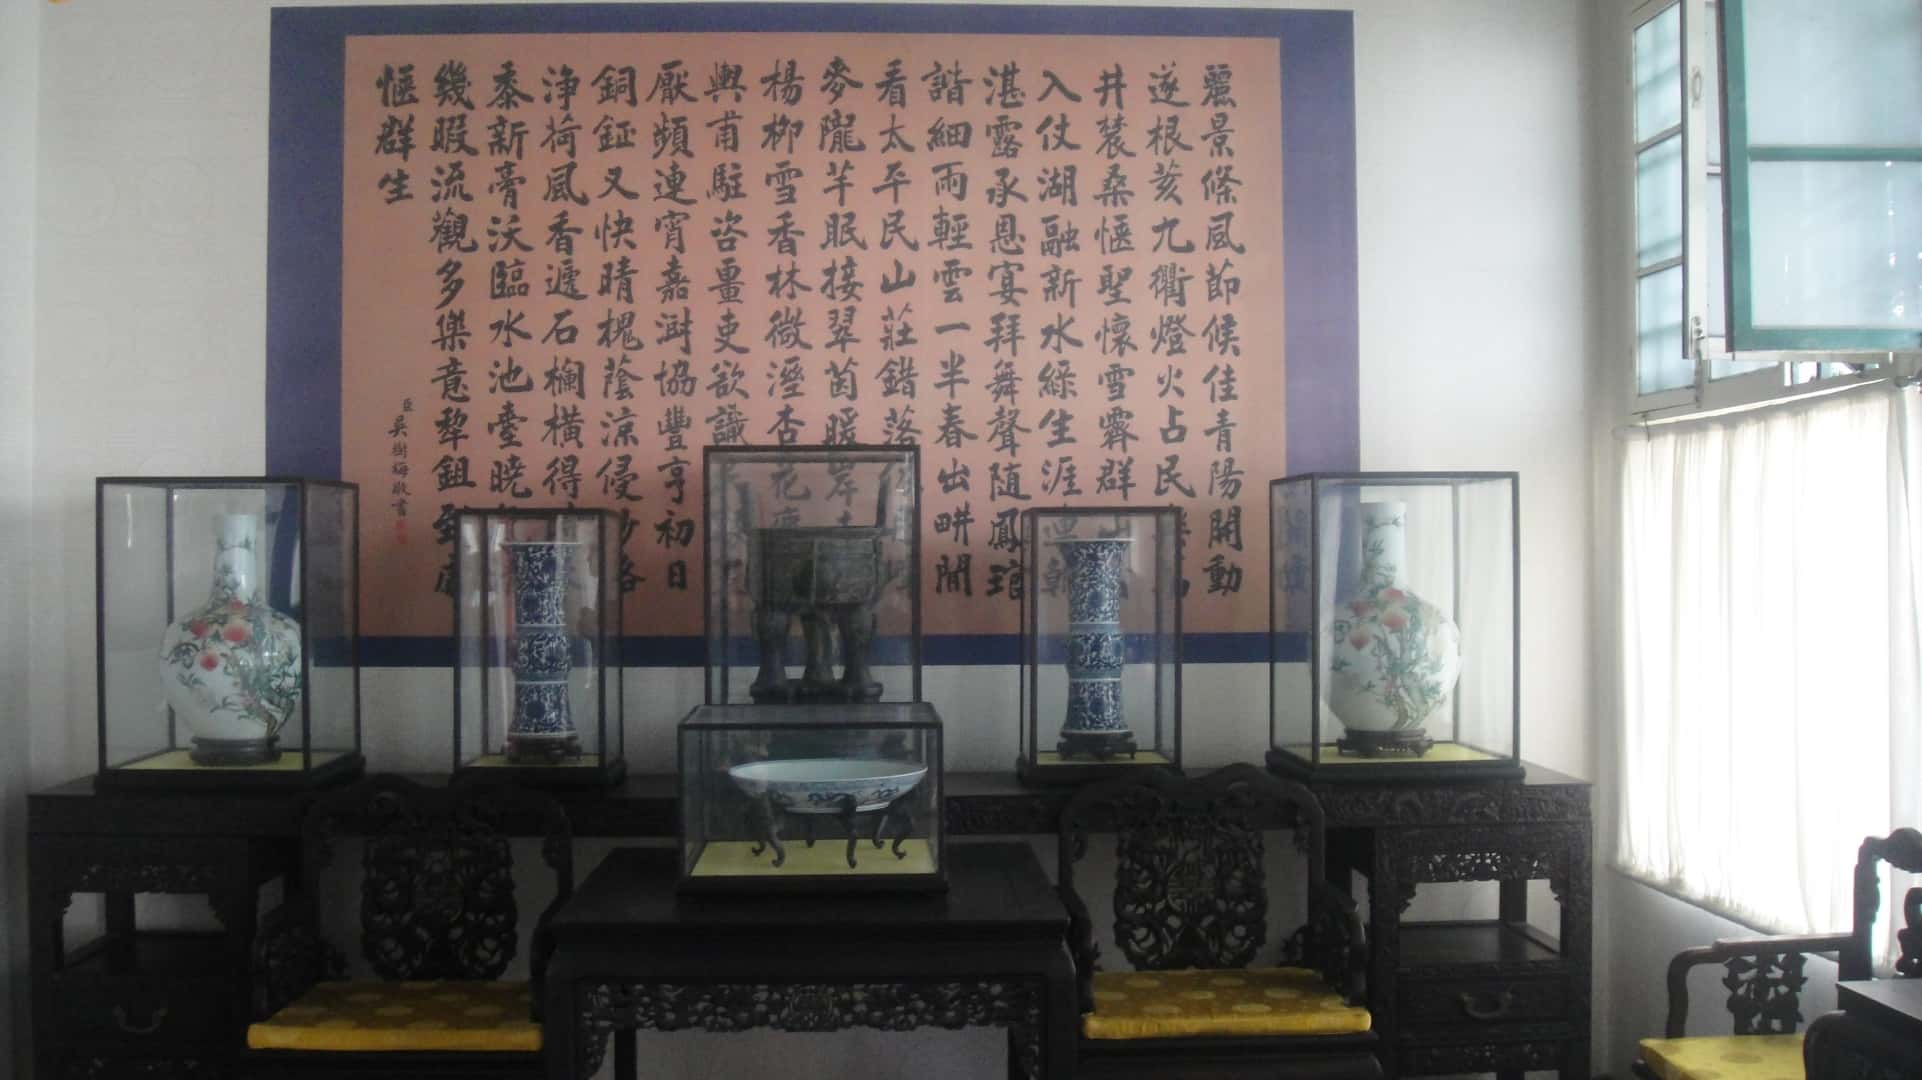 麗景條風節候佳青陽開動
遂根荄九衢燈火占民樂萬
井農桑愜聖懷雪霽群山
入仗湖融新水綠生涯朝
湛露承恩宴拜舞聲隨鳳琯
諧細雨輕雲一半春出畊閒
看太平民山莊錯落
麥隴芊眠接翠茵暖
楊柳雪香林微溼杏花
輿甫駐咨畺吏欲識
厭頻連宵嘉澍協豐亨初日
銅鉦又快晴槐蔭涼侵
浄荷風香遞石欄橫得
黍新膏沃臨水池臺曉
幾暇流觀多樂意犁鉏到處
愜群生
臣吳樹梅敬書